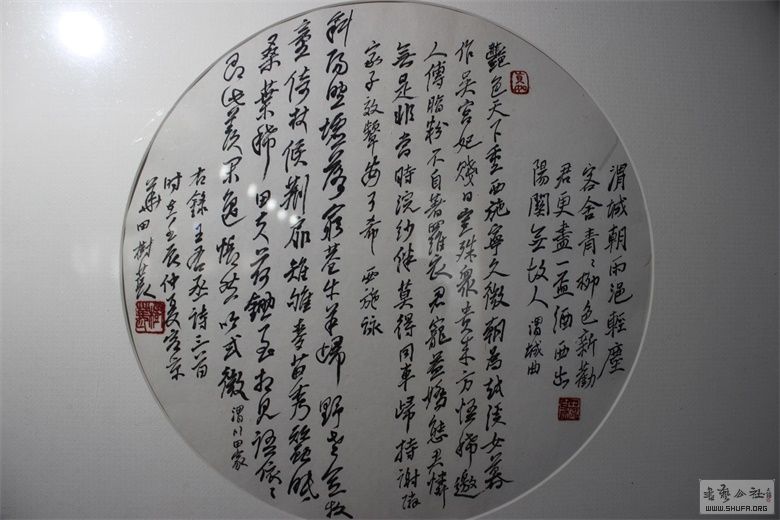 渭城朝雨浥輕塵
客舍青〻柳色新勸
君更盡一盃酒西出
陽關無故人 渭城曲
豔色天下重西施寧久微朝爲越溪女暮
作吳宮妃賤日豈殊眾貴來方悟稀邀
人傅脂粉不自著羅衣君寵益嬌態君憐
無是非當時浣紗伴莫得同車歸持謝鄰
家子效顰安可希 西施詠
斜陽照墟落窮巷牛羊歸 野老念牧
童倚杖候荊扉雉雊麥苗秀蠶眠
桑葉稀田夫荷鋤至相見語依〻
即此羨閒逸悵然吟式微 渭川田家
右錄王右丞詩三首
時在壬辰仲夏客京
田樹
书艺公社
WWW.SHUFA.ORG